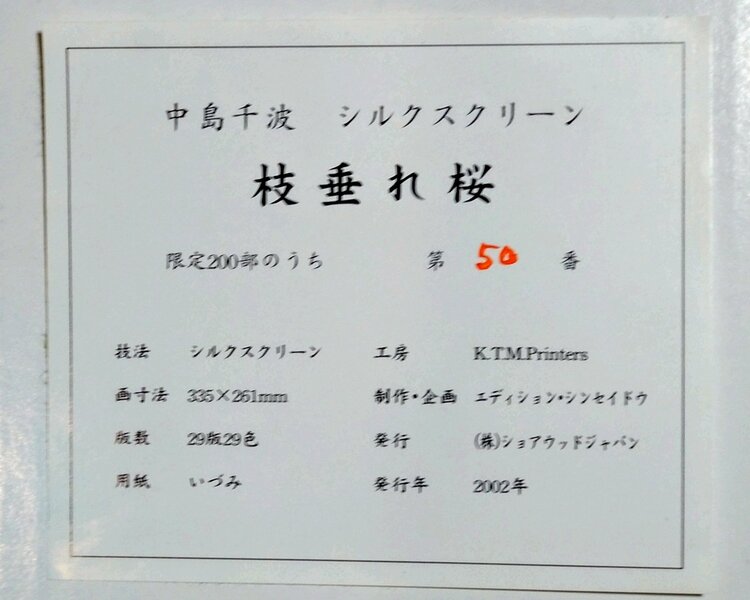 中島千波　シルクスクリーン
枝垂れ桜
限定200部のうち　第 50 番
技法　シルクスクリーン　工房　K.T.M.Printers
画寸法　335×261mm　制作・企画　エディション・シンセイドウ
版数　29版29色　発行　(株)ショアウッドジャパン
用紙　いづみ　発行年　2002年